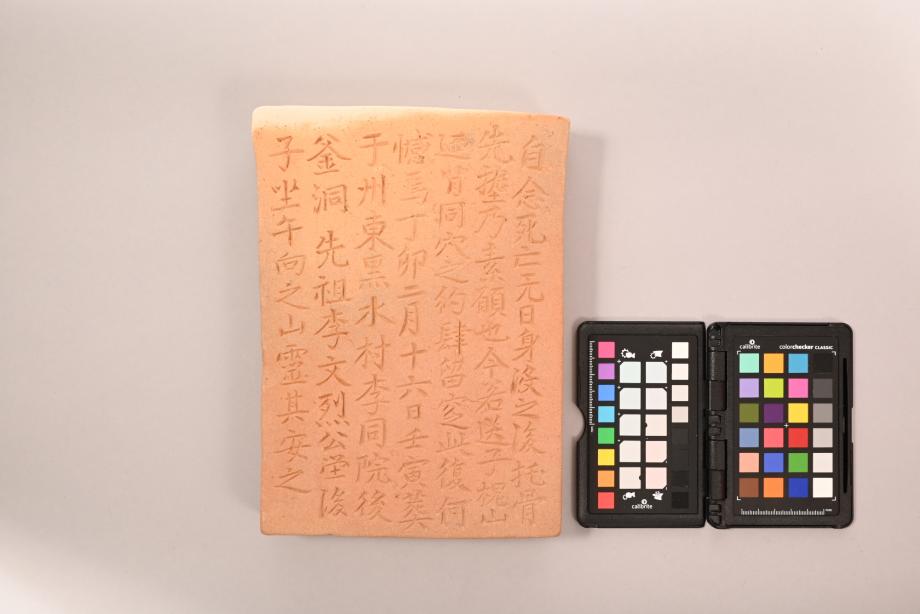 自念死亡无日身沒之後托骨
先壟乃素願也今名送子槐山
延背同穴之約肆留玄此復何
憾焉丁卯二月十六日壬寅葬
于州東黒水村李同院後
釜洞 先祖李文烈公塋後
子坐午向之山靈其安之
calibrite
calibrite
colorchecker CLASSIC